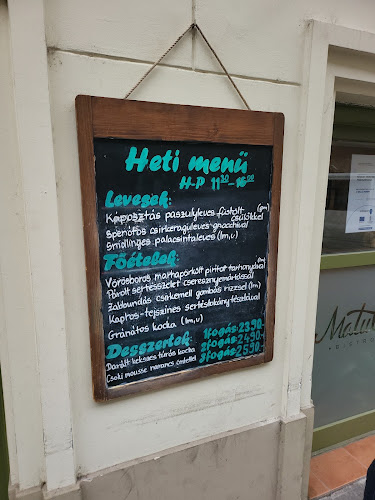 Heti menü
H-P 11³⁰-16⁰⁰
Levesek:
Káposztás paszulyleves füstölt (gm)
csülökkel
Spenótos csirkeraguleves gnocchival
Smidlinges palacsintaleves (lm,v)
Főételek:
Vörösboros marhapörkölt pirított tarhonyával (lm)
Párolt sertésszelet cseresznyemártással
Zablundás csirkemell gombás rizzsel (lm)
Kapros-tejszínes sertéstokány tésztával
Gránátos kocka (lm,v)
Desszertek:
Darált kekszes túrós kocka
Csoki mousse narancs öntettel
1 fogás 2390.-
2 fogás 2490.-
3 fogás 2590.-